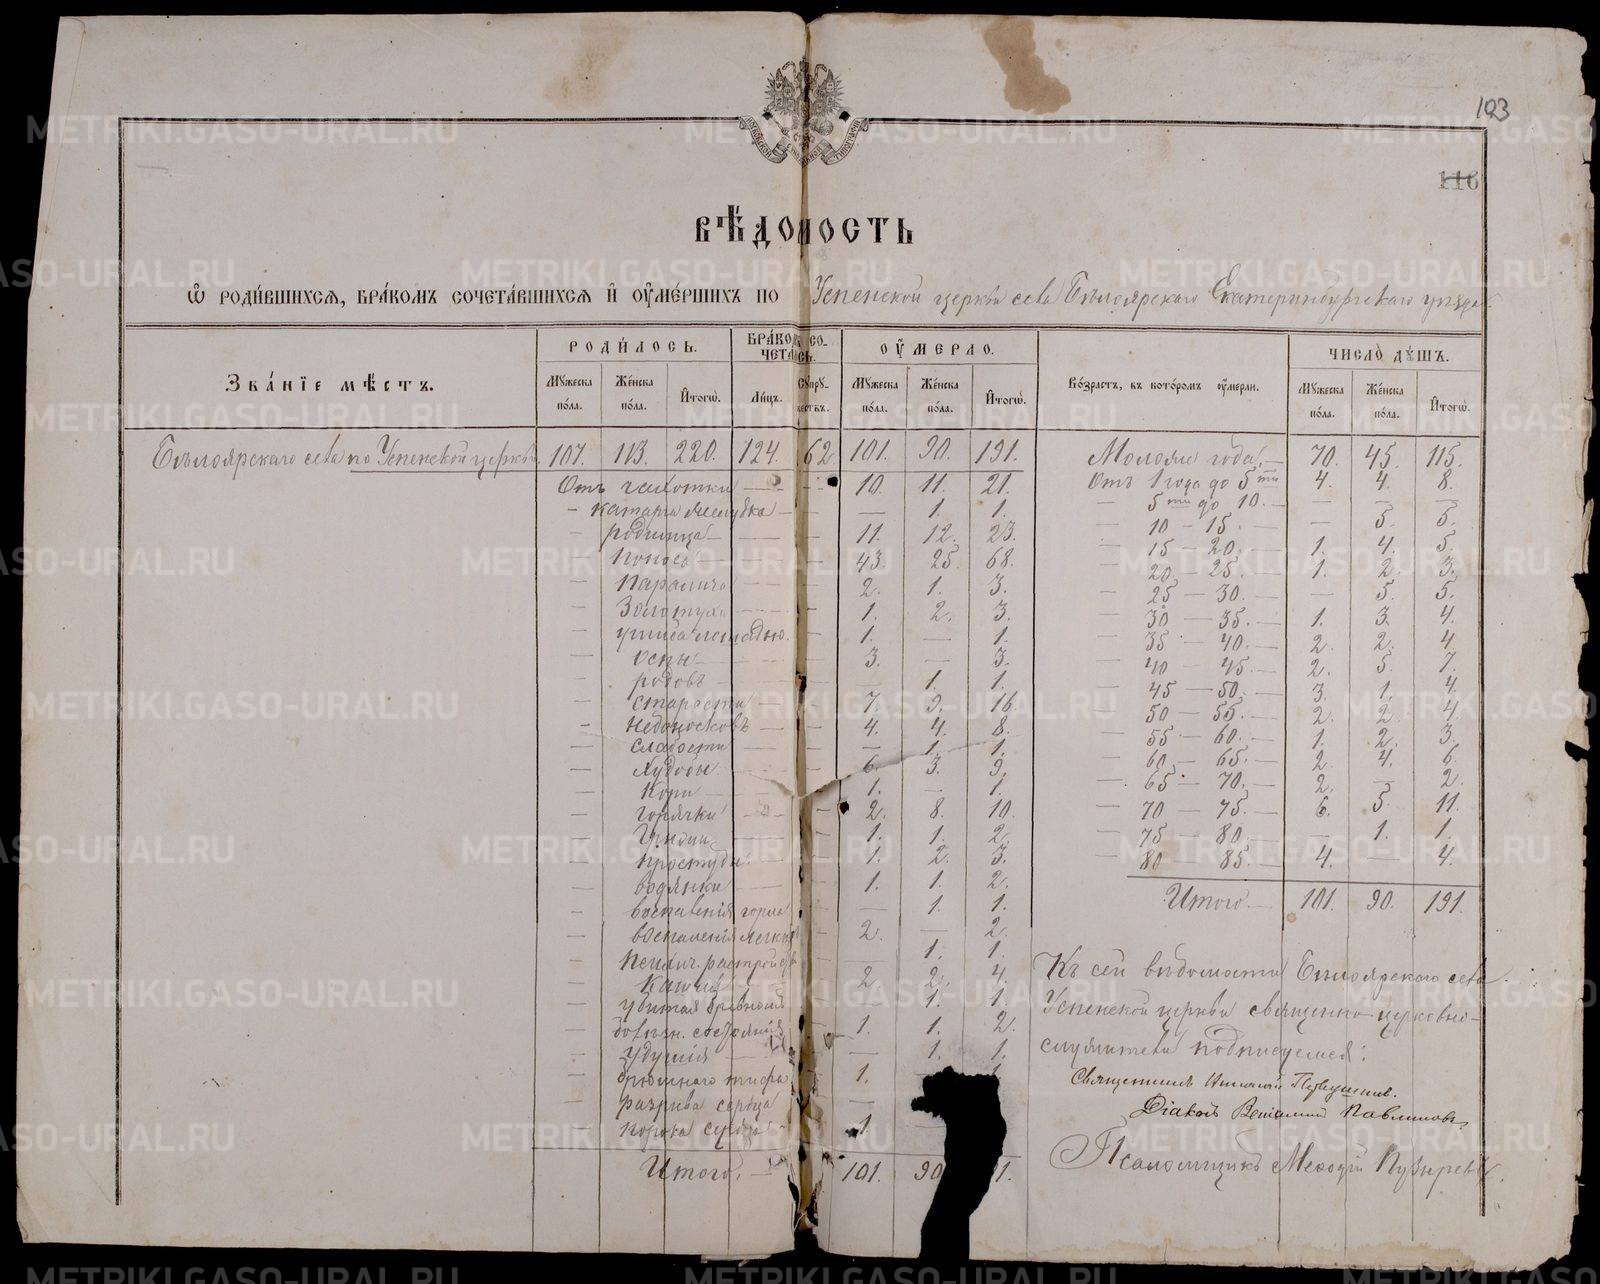 123
116
ВѢДОМОСТЬ
Ѡ РОДИВШИХСЯ, БРАКОМЪ СОЧЕТАВШИХСЯ И ОУМЕРШИХЪ ПО Успенской церкви села Бѣлоярскаго Екатеринбургскаго уѣзда
РОДИЛОСЬ. БРАКОМЪ СОЧЕТАЛОСЬ. ОУМЕРЛО. ЧИСЛО ДУШЪ.
ЗВАНІЕ МѢСТЪ. Мужеска пола. Женска пола. Итогѡ. Лицъ. Супружествъ. Мужеска пола. Женска пола. Итогѡ. Возрастъ, въ которомъ оумерли. Мужеска пола. Женска пола. Итогѡ.
Бѣлоярскаго села по Успенской церкви 107. 113. 220. 124. 62 101. 90. 191. Моложе года 70. 45. 115.
Отъ чахотки 10. 11. 21. Отъ 1 года до 5ти 4. 4. 8.
— катарра желудка — 1. 1. — 5ти до 10. — — —
— родимца 11. 12. 23. — 10 — 15. — 5. 5.
— поноса 43. 25. 68. — 15 — 20. 1. 4. 5.
— паралича 2. 1. 3. — 20 — 25. 1. 2. 3.
— золотухи 1. 2. 3. — 25 — 30. — 5. 5.
— ушиба лошадью. 1. — 1. — 30 — 35. 1. 3. 4.
— оспы 3. — 3. — 35 — 40. 2. 2. 4.
— родовъ — 1. 1. — 40 — 45. 2. 5. 7.
— старости 7. 9. 16. — 45 — 50. 3. 1. 4.
— недоносковъ 4. 4. 8. — 50 — 55. 2. 2. 4.
— слабости — 1. 1. — 55 — 60. 1. 2. 3.
— худобы 6. 3. 9. — 60 — 65. 2. 4. 6.
— кори 1. — 1. — 65 — 70. 2. — 2.
— горячки 2. 8. 10. — 70 — 75. 6. 5. 11.
— 1. 1. 2. — 75 — 80. — 1. 1.
— простуды 1. 2. 3. — 80 85. 4. — 4.
— водянки 1. 1. 2. Итого. 101. 90. 191.
— воспаленія горла — 1. 1.
— воспаленія легкихъ 2. — 2.
— растройства — 1. 1.
— кашля 2. 2. 4.
— убитая бревномъ — 1. 1.
— болѣзн. состоянія 1. 1. 2.
— удушія — 1. 1.
— брюшнаго тифа 1.
— разрыва сердца —
— порока сердца 1.
Итого. 101. 90 91.
Къ сей вѣдомости Бѣлоярскаго села
Успенской церкви священно-церковно-
служители подписуемся:
Священникъ Николай
Діаконъ Веніаминъ Павлиновъ.
Псаломщикъ Меѳодій Пузыревъ.
METRIKI.GASO-URAL.RU